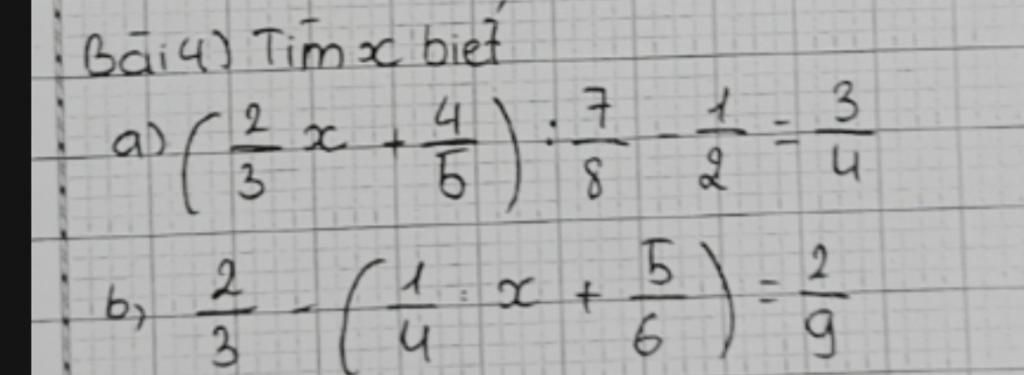 Bài 4) Tìm x biết
a) (2/3 x + 4/5) : 7/8 - 1/2 = 3/4
b, 2/3 - (1/4 : x + 5/6) = 2/9